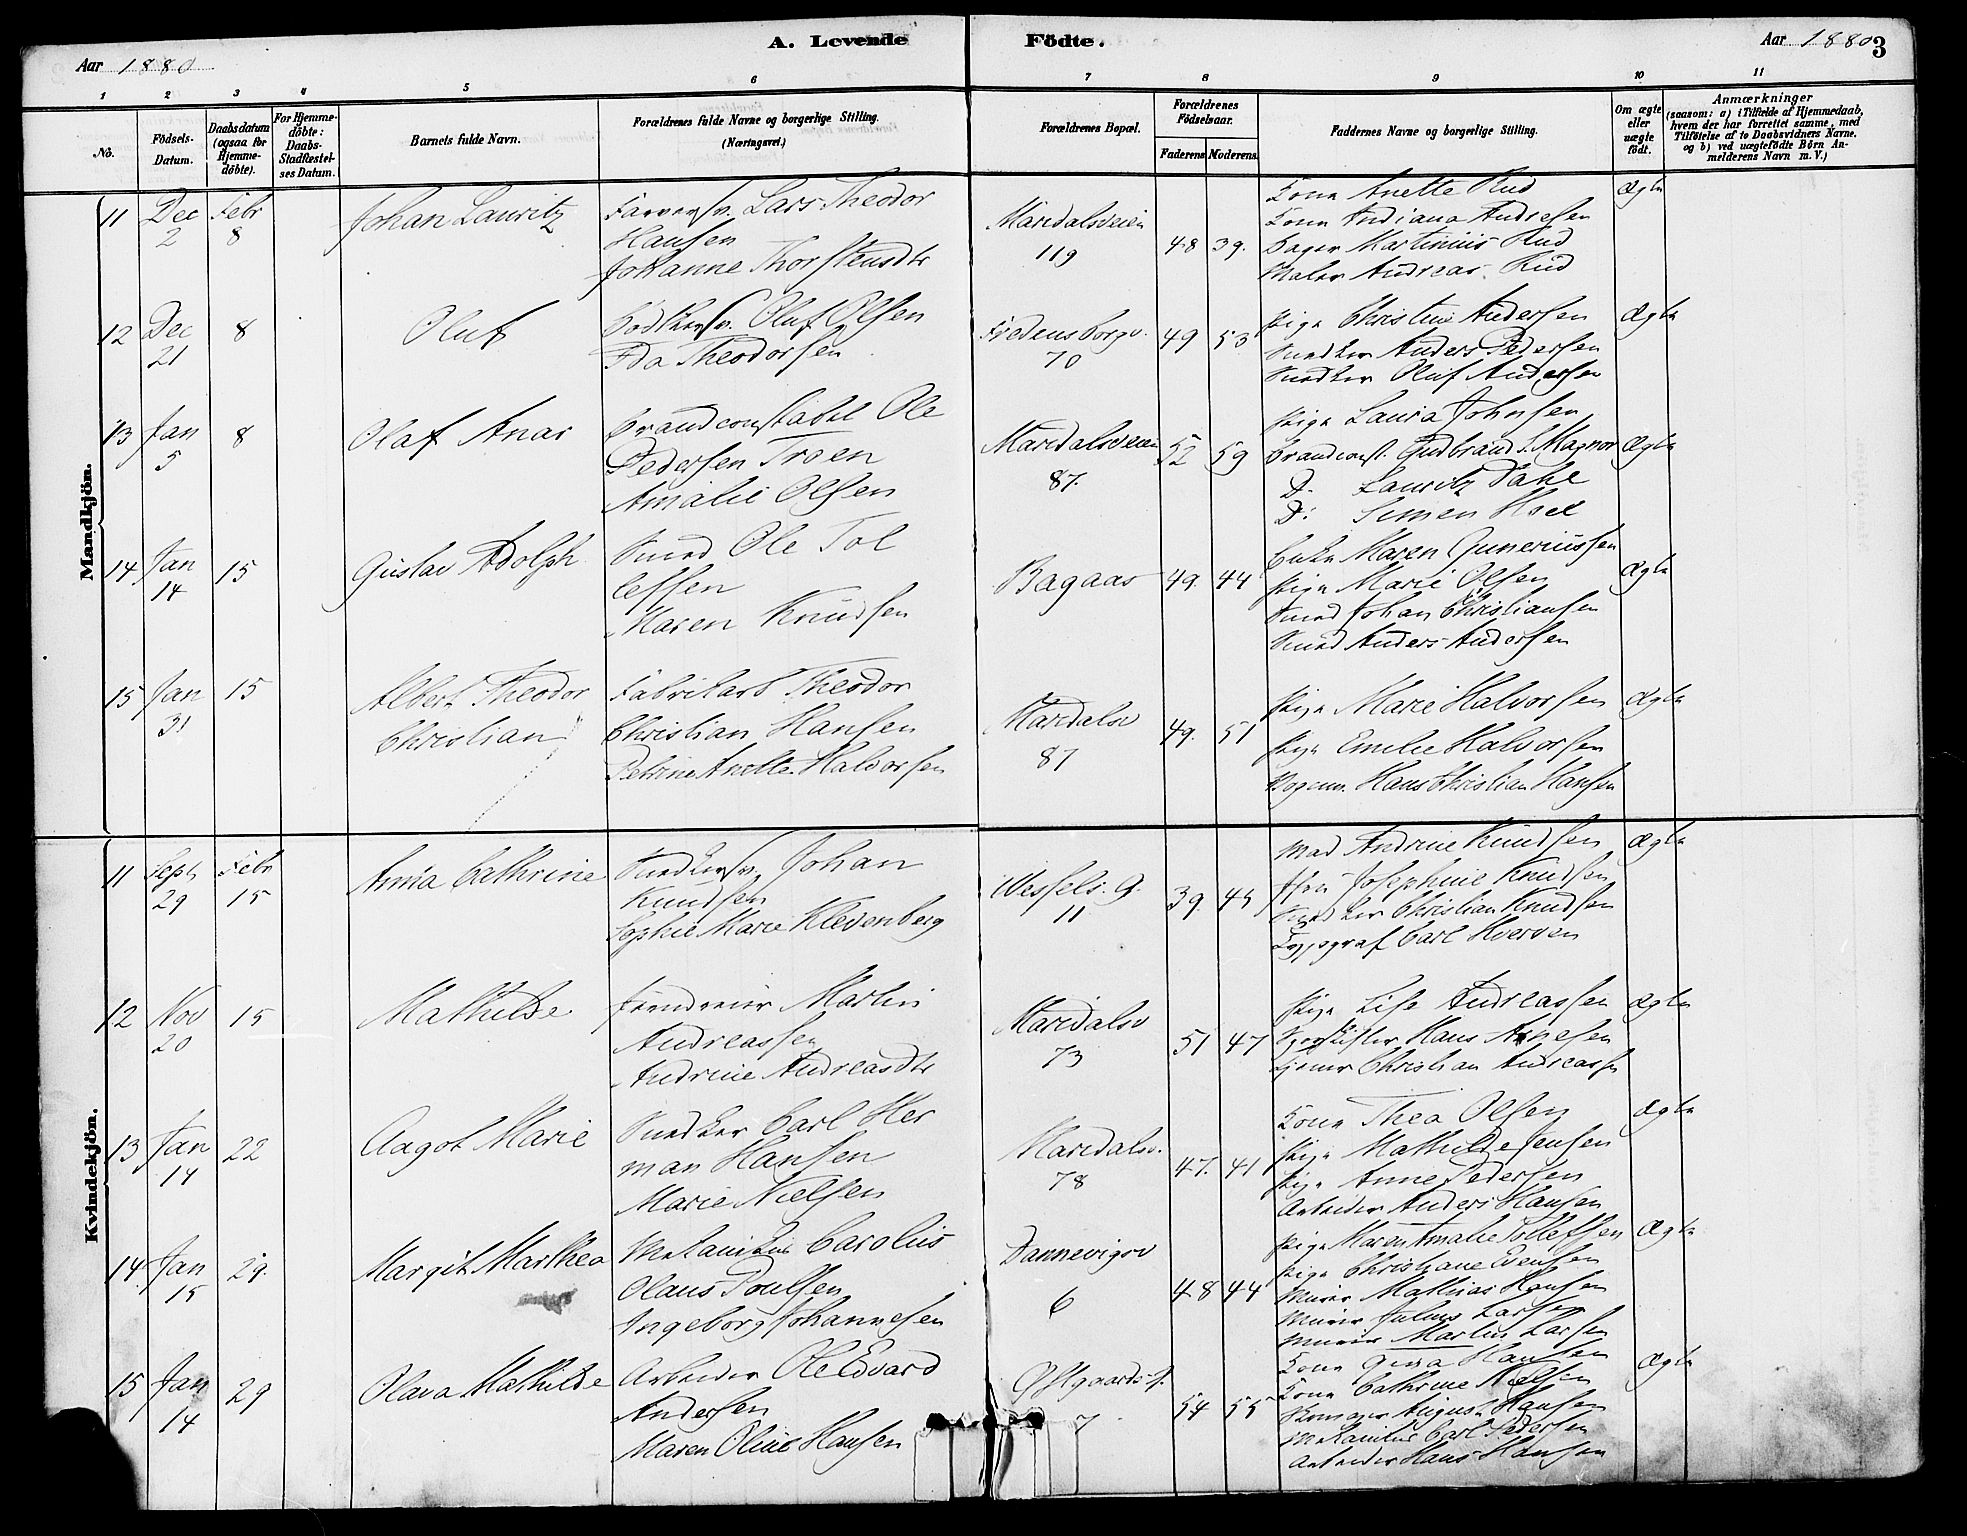 A. Levende Födte.
Aar 1880
Aar 1880 3
1 2 3 4 5 6 7 8 9 10 11
No.
Födsels-Datum.
Daabsdatum (ogsaa for Hjemme-döbte).
For Hjemme-döbte: Daabs-Stadfæstel-ses Datum.
Barnets fulde Navn.
Forældrenes fulde Navne og borgerlige Stilling. (Næringsvei.)
Forældrenes Bopæl.
Forældrenes Födselsaar.
Faderens Moderens
Faddernes Navne og borgerlige Stilling.
Om ægte eller uægte født.
Anmærkninger
(saasom: a) i Tilfælde af Hjemmedaab, hvem der har forrettet samme, med Tilföielse af to Daabsvidners Navne. og b) ved uægtefödte Börn An-melderens Navn m. V.)
Mandkjön.
11 Dec 2 Febr 8 Johan Lauritz
Farversv. Lars Theodor
Hansen
Johanne Thorstensdtr
Maridalsveien
119
48 39.
Kone Anette Rud
Kone Andiana Andresen
Bager Martinius Rud
Maler Andreas Rud
Ægte
12 Dec 21 8 Oluf
Bödkersv. Oluf Olsen
Ida Theodorsen
Fredensborgv.
70
49 53
Pige Christine Andersen
Snedker Anders Pedersen
Snedker Oluf Andersen
Ægte
13 Jan 5 8 Olaf Anar
Brandconstabel Ole
Pedersen Troen
Amalie Olsen
Maridalsveien
87.
52 59
Pige Laura Johnsen
Brandconst. Gudbrand S. Magnor
D. Lauritz Dahl
D: Simen Hoel
Ægte
14 Jan 14 15 Gustav Adolph
Smed Ole Tol
lefsen
Maren Knudsen
Bagaas
49. 44
Enke Maren Guneriussen
Pige Marie Olsen
Smed Johan Christiansen
Smed Anders Andersen
Ægte
15 Jan 31 15 Albert Theodor
Christian
Fabrikarb Theodor
Christian Hansen
Petrine Anette Halvorsen
Maridalsv
87
49. 51
Pige Marie Halvorsen
Pige Emilie Halvorsen
Hans Christian Hansen
Ægte
Kvindekjön.
11 Sept 29 Febr 15 Anna Cathrine
Snedkersv. Johan
Knudsen
Sophie Marie Klevenberg
Wessels. g.
11
39.
Mad Andrine Knudsen
Josephine Knudsen
Snedker Christian Knudsen
Typograf Carl Hverven
Ægte
12 Nov 20 15 Mathilde
Jerndreier Martin
Andreassen
Andrine Andreasdtr
Maridalsv
73
51 47
Pige Lise Andreassen
Hans Arnesen
Christian Andreassen
Ægte
13 Jan 14 22 Aagot Marie
Snedker Carl Her
man Hansen
Marie Nielsen
Maridalsv.
78
47. 41
Kone Thea Olsen
Pige Mathilde Jensen
Pige Anne Pedersen
Arbeider Anders Hansen
Ægte
14. Jan 15 29. Margit Marthea
Mekanikus Carolius
Olaus Poulsen
Ingeborg Johannesen
Dannevigsv
6
48 44
Pige Maren Amalie Tollefsen
Pige Christiane Evensen
Murer Mathias Hansen
Murer Julius Larsen
Murer Martin Larsen
Ægte
15 Jan 14 29 Olava Mathilde
Arbeider Ole Edvard
Andersen
Maren Oline Hansen
7
54 55
Kone Gina Hansen
Kone Cathrine Nielsen
August Hansen
Mekanikus Carl Pedersen
Arbeider Hans Hansen
Ægte